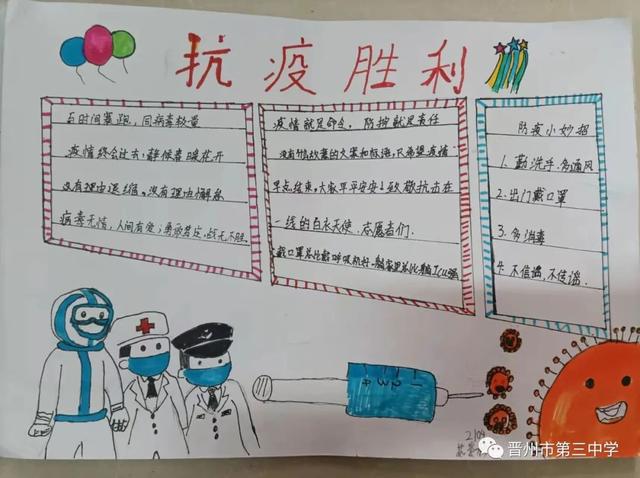 抗疫胜利
与时间赛跑,同病毒较量
疫情终会过去;静候春暖花开
没有理由退缩。没有理由懈怠
病毒无情,人间有爱;勇敢笃定,战无不胜.
疫情就是命令,防控就是责任
没有什么
的大案和标语,只希望疫情
早点结束。大家平平安安!致敬抗击在
一线的白衣天使、志愿者们.
戴口罩总比戴呼吸机好,躺家里总比躺ICU强
防疫小妙招
1.勤洗手,多通风
2.出门戴口罩
3.多消毒
4.不信谣,不传谣.
1 2 3 4
晋州市第三中学